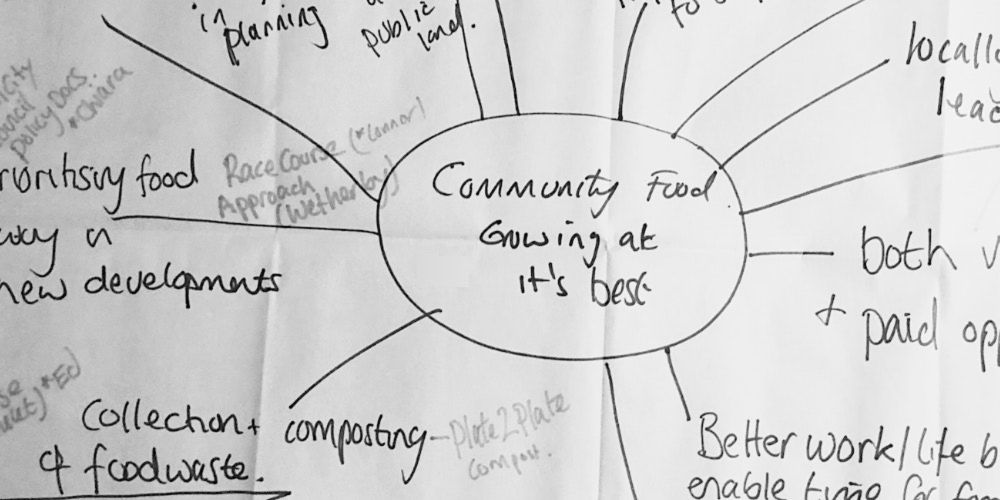 in
planning
public
land.
to
locall
lead
City
Council
Policy Docs.
*Chiara
food
Race Course (*Connor)
Approach
(Wetherby)
way in
new developments
Community Food
Growing at
it's best
both v
+ paid opp
*Ed
Collection +
composting - Plate2Plate
Compost.
of foodwaste.
Better work/life b
enable time for